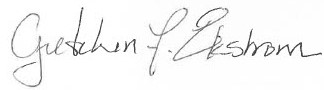 Gretchen F. Ekstrom